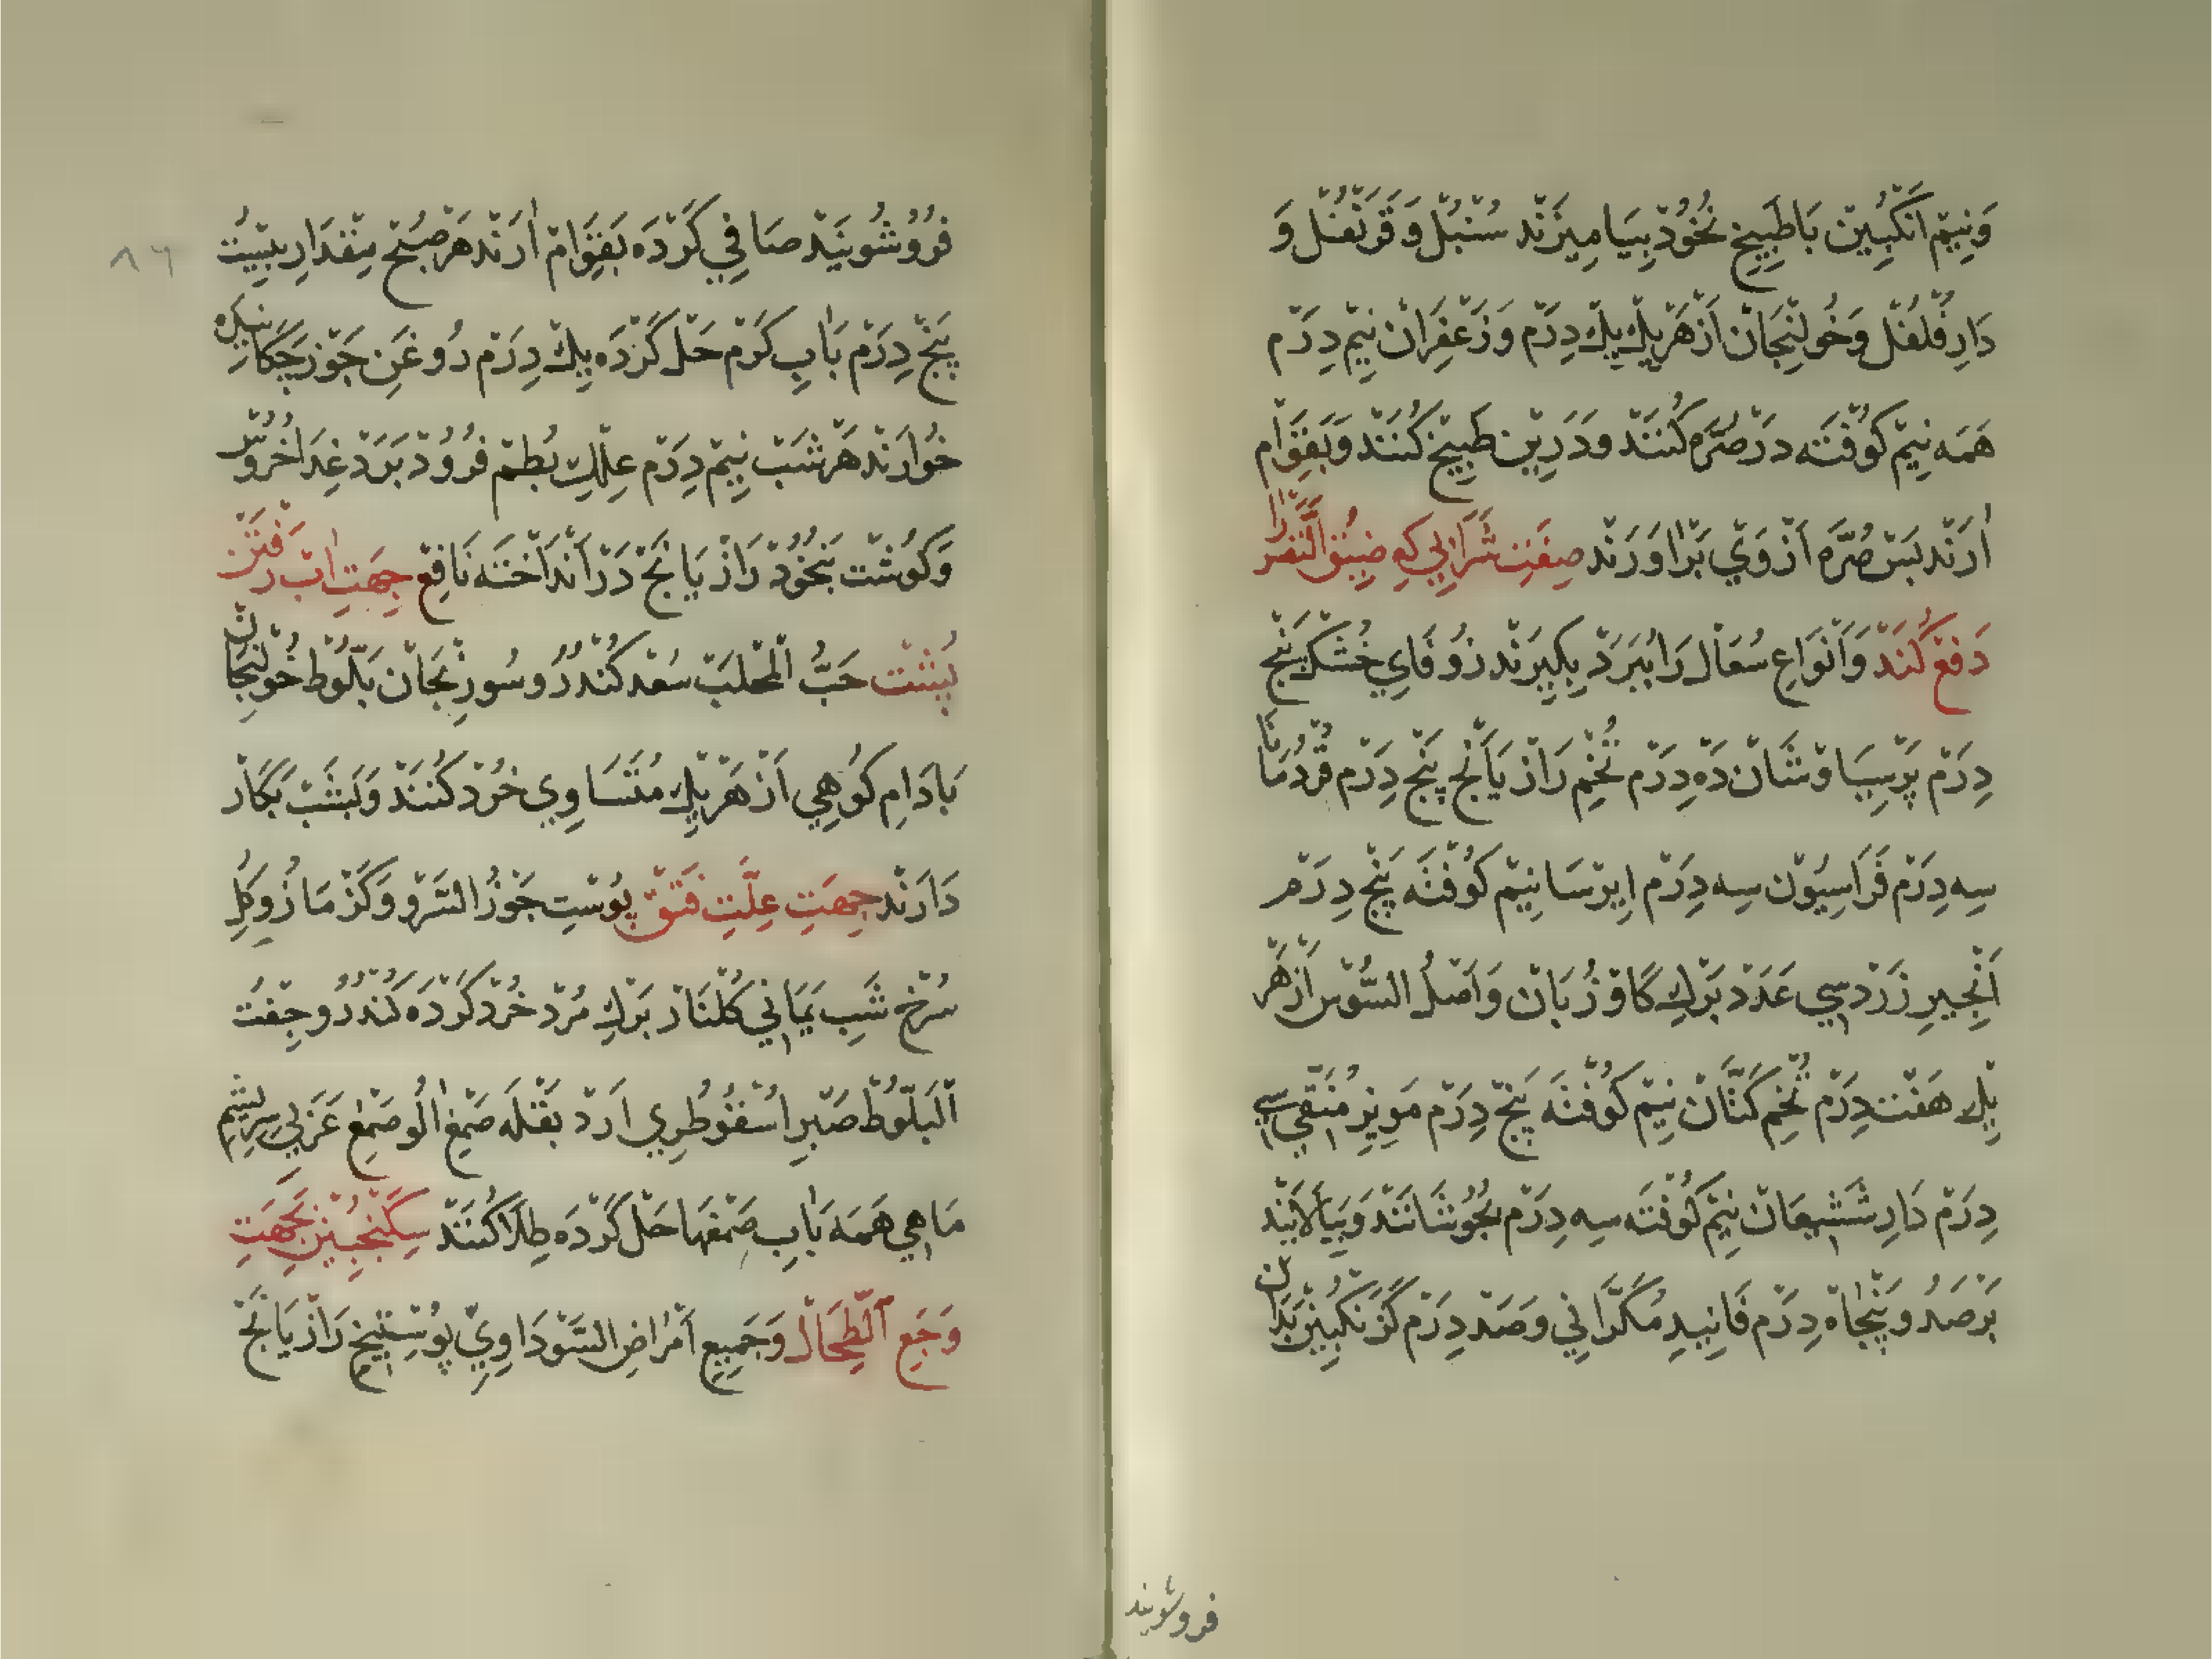 وَنِیم انگبین با طبیخ نخود بیامیزند سنبل و قرنفل و
دار فلفل و خولنجان از هر یك یك درم و زعفران نیم درم
همه نیم كوفته در صرّه كنند و درین طبیخ كنند و بقوام
ارند بس صرّه از وی براورند صفت شرابی كه ضیق النفس را
دفع كند و انواع سعال را ببرد بكیرند زوفای خشك بنج
درم پرسیاوشان ده درم تخم رازیانج پنج درم قردمانا
سه درم فراسیون سه درم ایرسا نیم كوفته پنج درم
انجیر زرد سی عدد برك كاوزبان و اصل السّوس از هر
یك هفت درم تخم كتّان نیم كوفته پنج درم مویز منقی سی
درم دار ششیعان نیم كوفته سه درم بجوشانند و بپالایند
بر صد و پنجاه درم فانید مكرانی و صد درم كزنكبین بدان
فروشویند
فروشویند صافی كرده بقوام ارند هر صبح مقدار بیست
پنج درم باب كرم حل كرده یك درم روغن جوز چكانیده
خوارند هر شب نیم درم علك بطم فرود برد غذا خروس
و كوشت بنخود رازیانج در انداخته نافع جهت اب رفتن
بپشت حبّ المحلب سعد كندر و سورنجان بلّوط خولنجان
بادام كوهی از هر یك متساوی خرد كنند و بشب بكار
دارند جهت علّت فتق پوست جوز السّرو و كزمازو و كل
سرخ شب یمانی كلنار برك مرد خرد كرده كندر و جفت
البلّوط صبر اسقوطری ارد بقله صمغ الو صمغ عربی سریشم
ماهی همه باب صمغها حل كرده طلا كنند سكنجبین بجهت
وجع الطّحال و جمیع امراض السّوداوی پوست بیخ رازیانج
٨٦